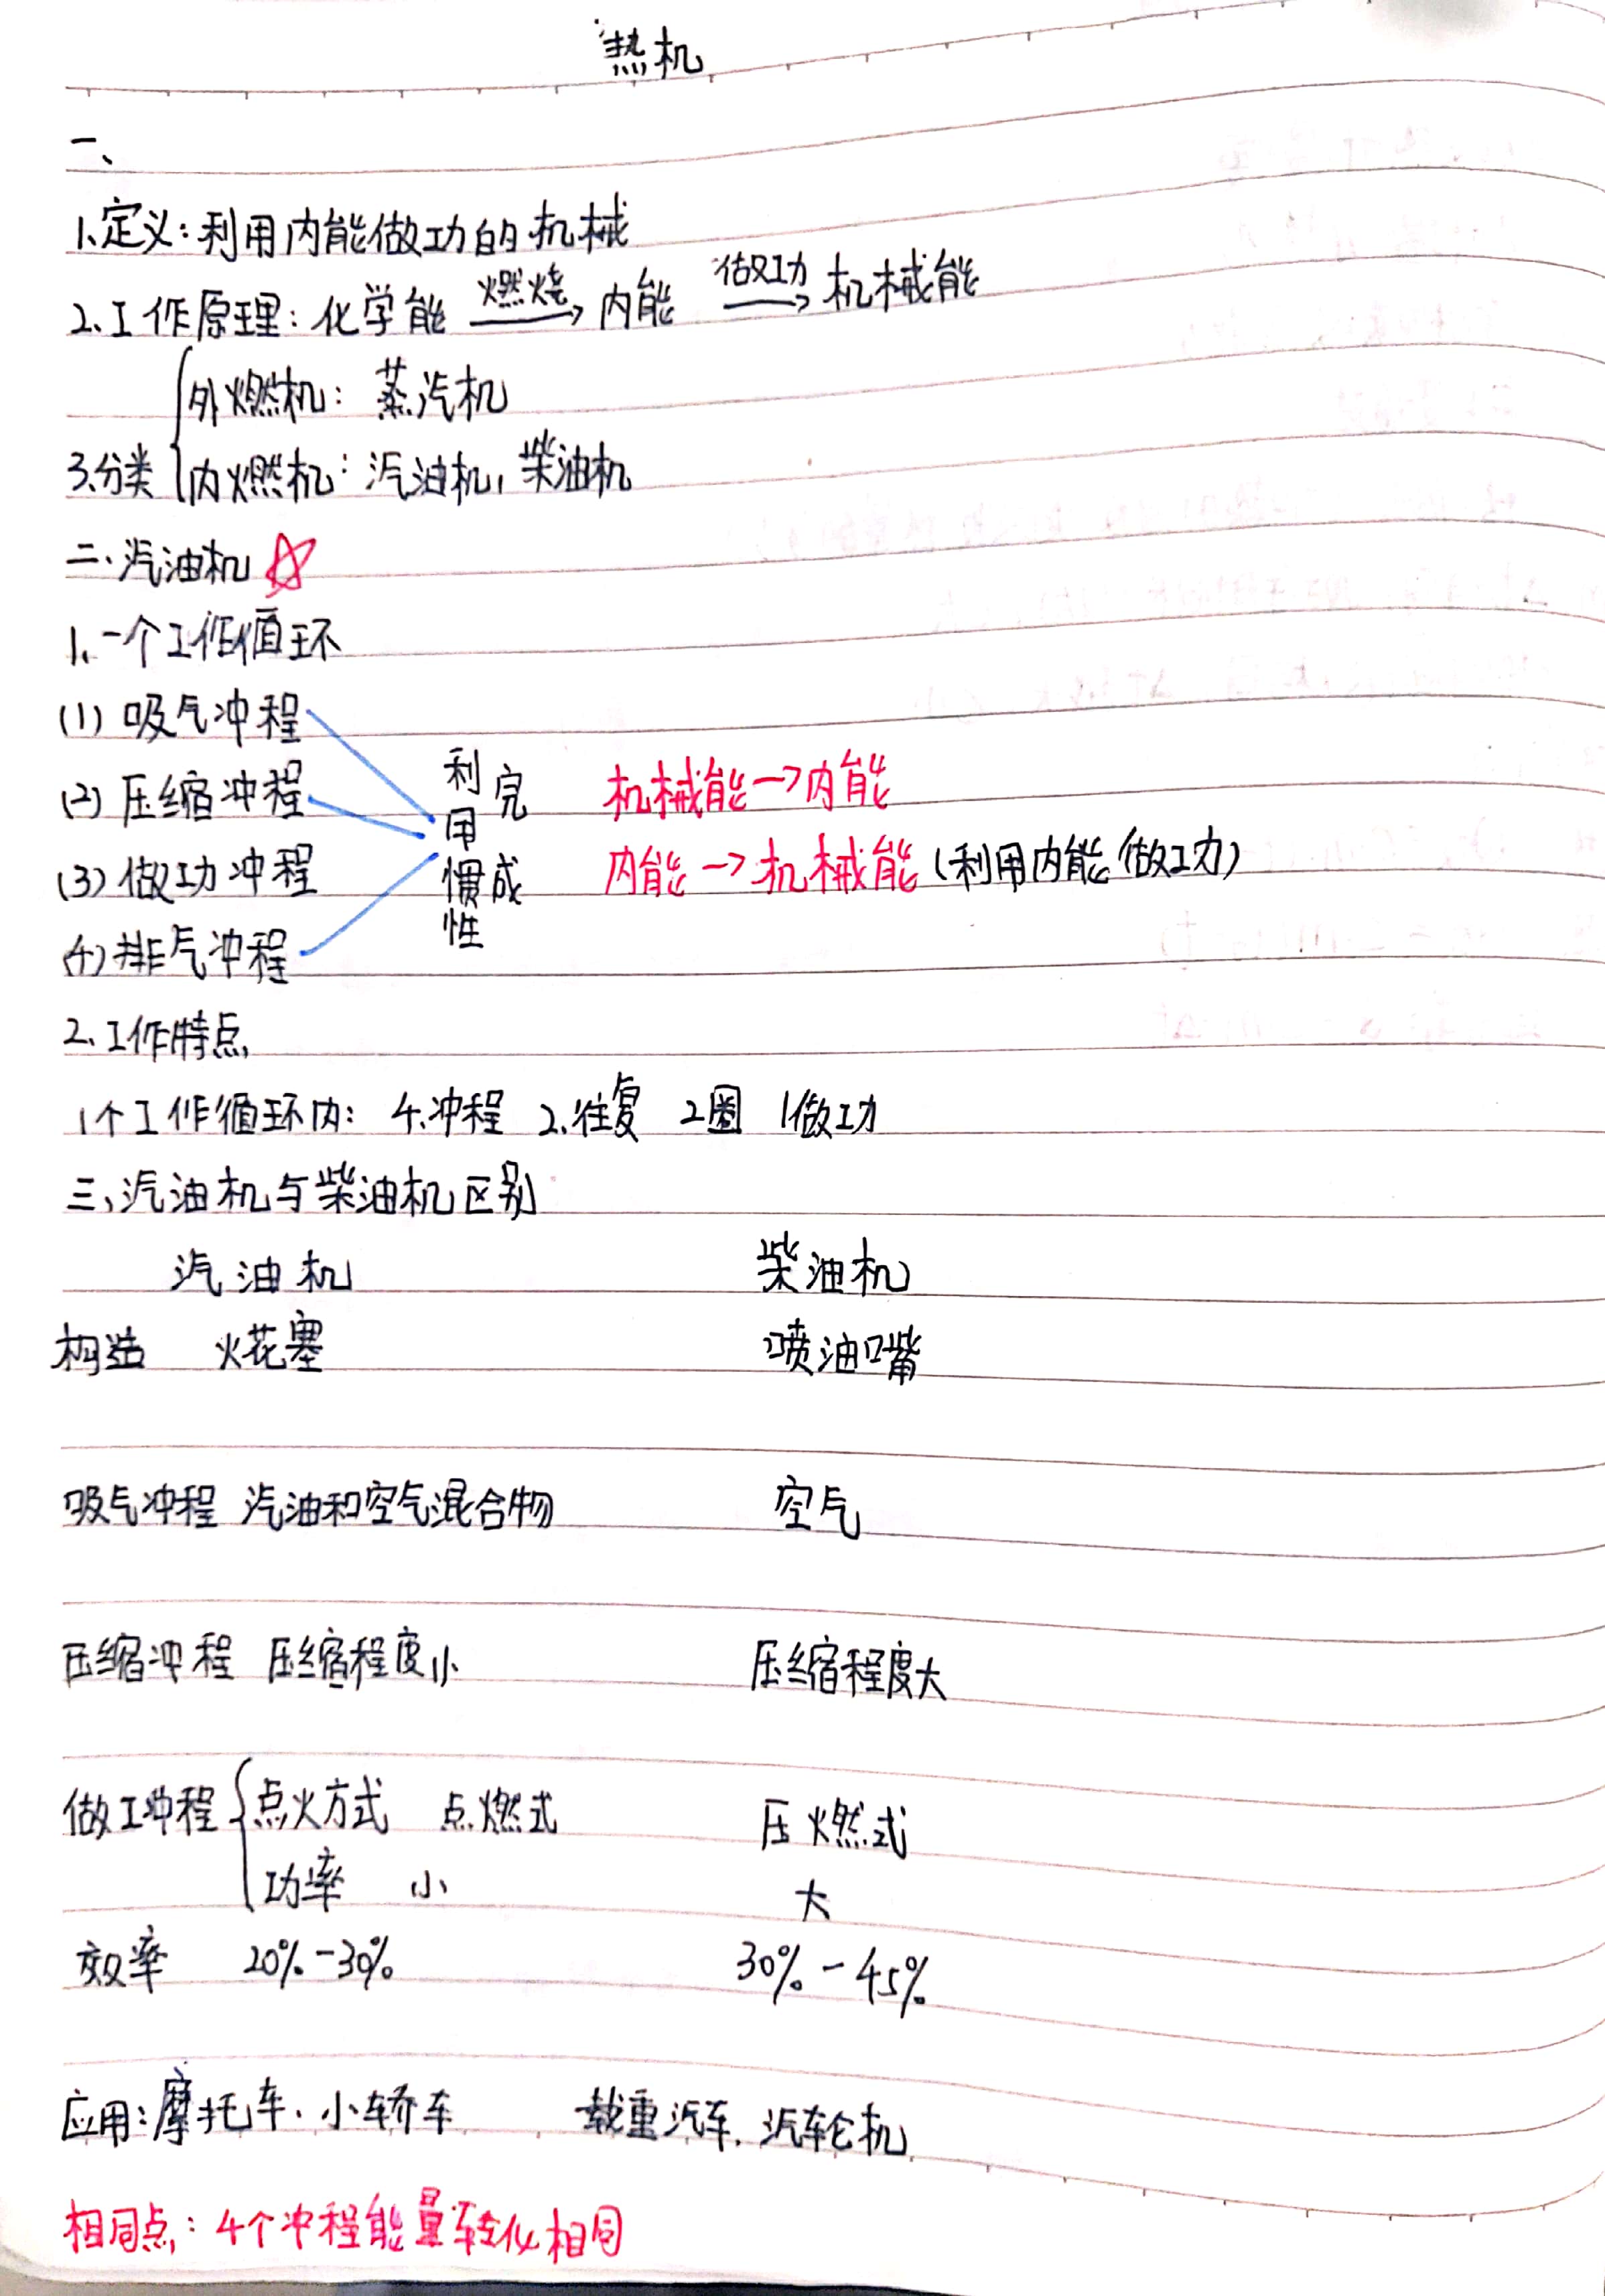 热机
一、
1、定义：利用内能做功的机械
2、工作原理：化学能 燃烧→ 内能 做功→ 机械能
外燃机：蒸汽机
3、分类
内燃机：汽油机，柴油机
二、汽油机 ☆
1、一个工作循环
(1) 吸气冲程
(2) 压缩冲程 利用惯性完成 机械能→内能
(3) 做功冲程 内能→机械能(利用内能做功)
(4) 排气冲程
2、工作特点
1个工作循环内：4冲程 2往复 2圈 1做功
三、汽油机与柴油机区别
汽油机 柴油机
构造 火花塞 喷油嘴
吸气冲程 汽油和空气混合物 空气
压缩冲程 压缩程度小 压缩程度大
做工冲程 点火方式 点燃式 压燃式
功率 小 大
效率 20%-30% 30%-45%
应用：摩托车、小轿车 载重汽车、汽轮机
相同点：4个冲程能量转化相同